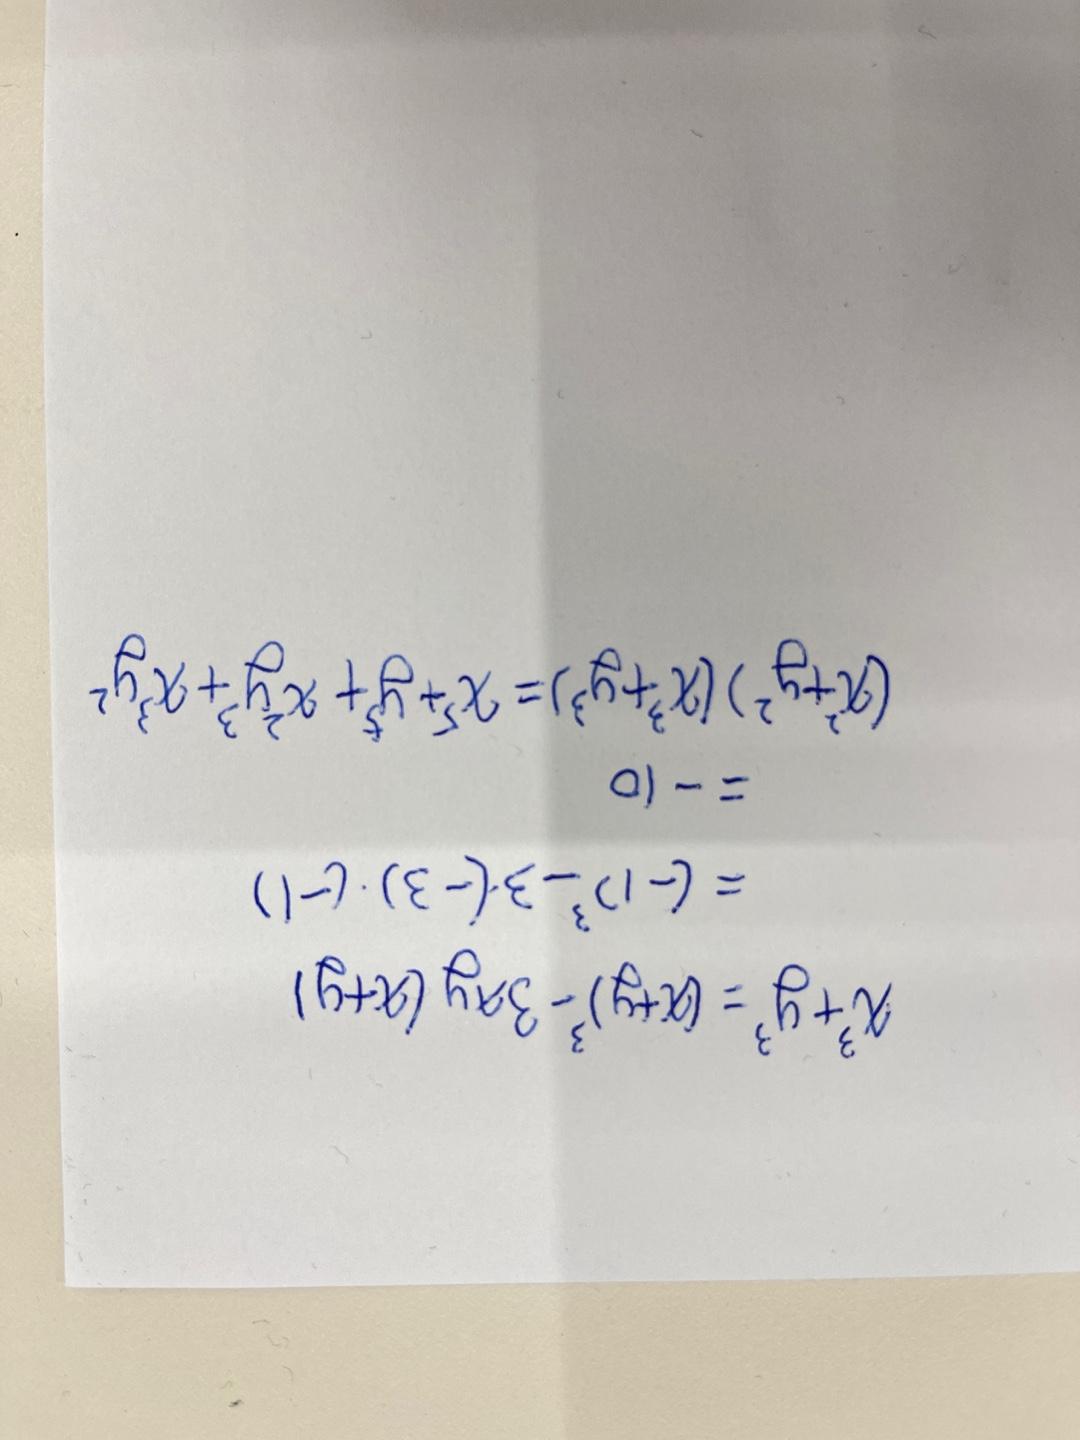 x³+y³ = (x+y)³-3xy(x+y)
= (-1)³-3·(-3)·(-1)
= -10
(x²+y²)(x³+y³)= x⁵+y⁵+x²y³+x³y²